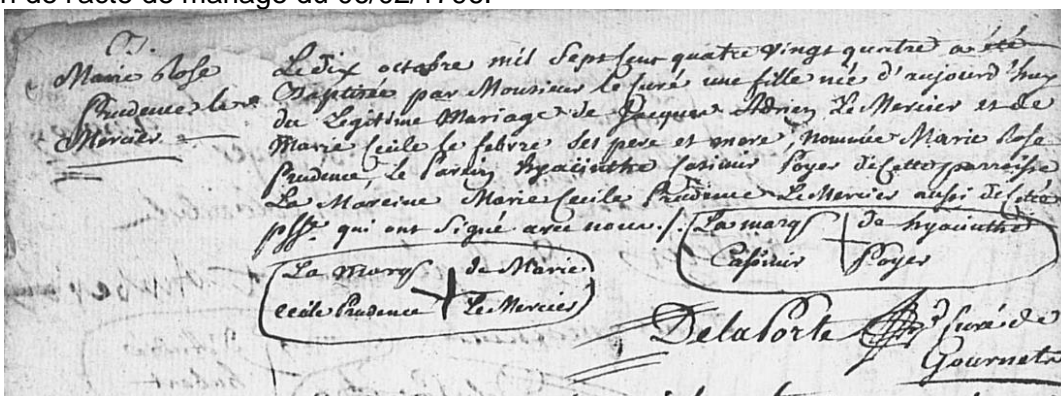 n de l'acte de mariage du
Marie Rose
Prudence le
Mercier
Le dix octobre mil Sept Cent quatre vingt quatre a été
Baptisée par Monsieur le Curé une fille née d'aujourd'huy
du Legitime Mariage de Jacques Adrien Le Mercier et de
Marie Cecile le febvre Ses pere et mere, nommée Marie Rose
Prudence, Le Parein hyacinthe Casimir Poyer de Cette parroisse
La Mareine Marie Cecile Prudence Le Mercier aussi de Cette
psse qui ont Signé avec nous ./.
La marq de hyacinthe
Casimir Poyer
La marq de Marie
cecile Prudence Le Mercier
Delaporte Curé de
Gournets